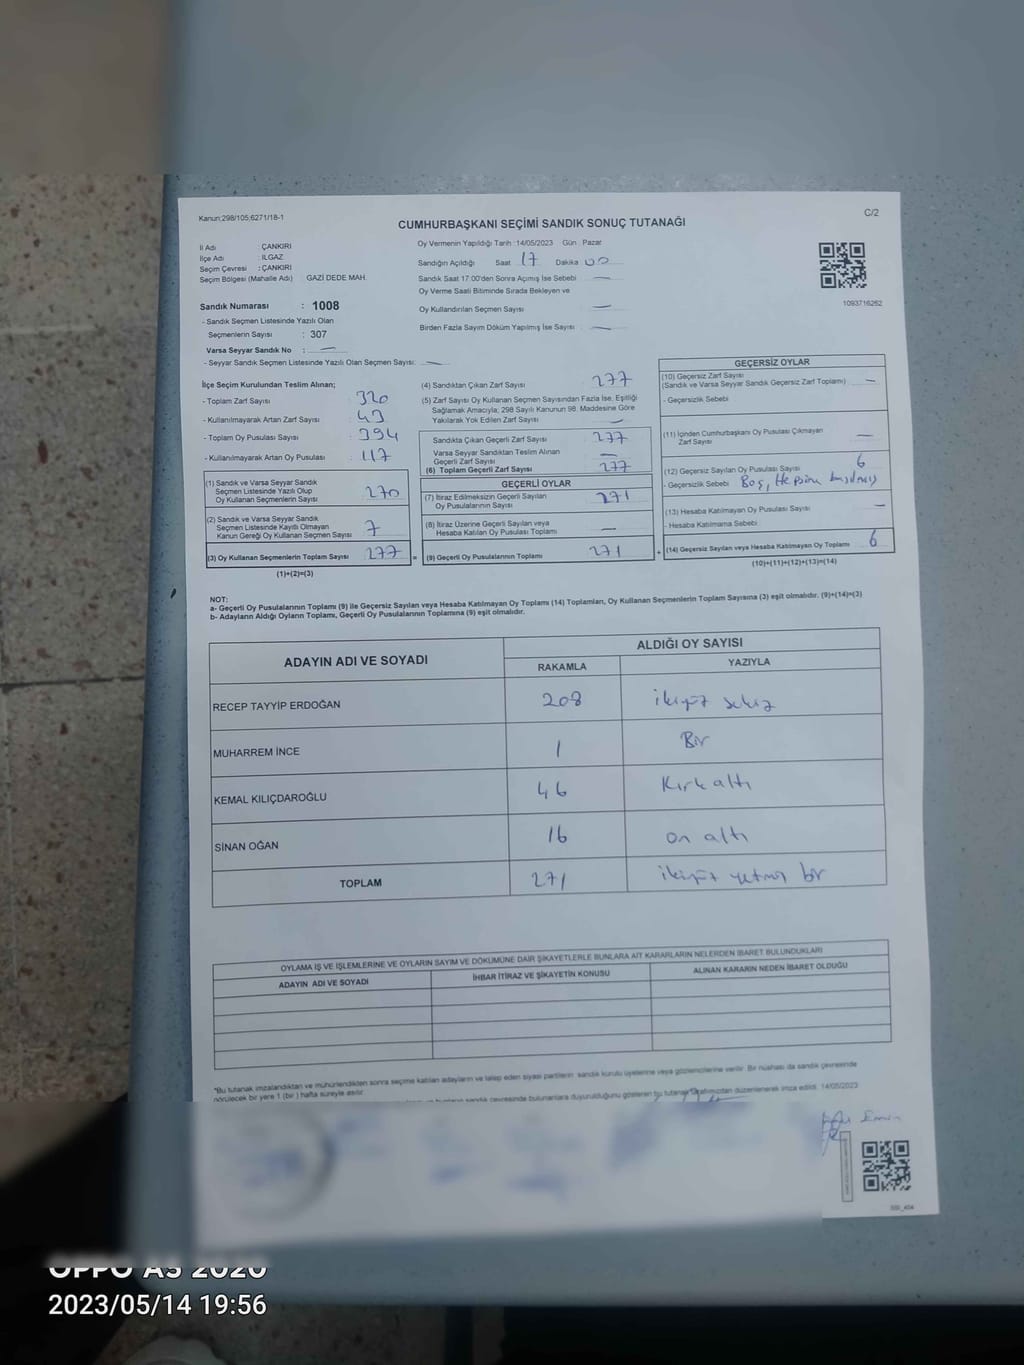 Kanun;298/105;6271/18-1
C/2
CUMHURBAŞKANI SEÇİMİ SANDIK SONUÇ TUTANAĞI
İl Adı : ÇANKIRI
İlçe Adı : ILGAZ
Seçim Çevresi : ÇANKIRI
Seçim Bölgesi (Mahalle Adı) : GAZİ DEDE MAH.
Oy Vermenin Yapıldığı Tarih :14/05/2023 Gün : Pazar
Sandığın Açıldığı Saat 17 Dakika 00
Sandık Saat 17:00'den Sonra Açımış İse Sebebi —
Oy Verme Saati Bitiminde Sırada Bekleyen ve
Oy Kullandırılan Seçmen Sayısı —
Birden Fazla Sayım Döküm Yapılmış İse Sayısı —
1093716262
Sandık Numarası : 1008
- Sandık Seçmen Listesinde Yazılı Olan
Seçmenlerin Sayısı : 307
Varsa Seyyar Sandık No : —
- Seyyar Sandık Seçmen Listesinde Yazılı Olan Seçmen Sayısı: —
İlçe Seçim Kurulundan Teslim Alınan;
- Toplam Zarf Sayısı 320
- Kullanılmayarak Artan Zarf Sayısı 43
- Toplam Oy Pusulası Sayısı 394
- Kullanılmayarak Artan Oy Pusulası 117
(1) Sandık ve Varsa Seyyar Sandık
Seçmen Listesinde Yazılı Olup
Oy Kullanan Seçmenlerin Sayısı 270
(2) Sandık ve Varsa Seyyar Sandık
Seçmen Listesinde Kayıtlı Olmayan
Kanun Gereği Oy Kullanan Seçmen Sayısı 7
(3) Oy Kullanan Seçmenlerin Toplam Sayısı 277 =
(1)+(2)=(3)
(4) Sandıktan Çıkan Zarf Sayısı 277
(5) Zarf Sayısı Oy Kullanan Seçmen Sayısından Fazla İse, Eşitliği
Sağlamak Amacıyla; 298 Sayılı Kanunun 98. Maddesine Göre
Yakılarak Yok Edilen Zarf Sayısı —
Sandıkta Çıkan Geçerli Zarf Sayısı 277
Varsa Seyyar Sandıktan Teslim Alınan
Geçerli Zarf Sayısı —
(6) Toplam Geçerli Zarf Sayısı 277
GEÇERLİ OYLAR
(7) İtiraz Edilmeksizin Geçerli Sayılan
Oy Pusulasının Sayısı 271
(8) İtiraz Üzerine Geçerli Sayılan veya
Hesaba Katılan Oy Pusulası Toplamı —
(9) Geçerli Oy Pusulalarının Toplamı 271 +
GEÇERSİZ OYLAR
(10) Geçersiz Zarf Sayısı
(Sandık ve Varsa Seyyar Sandık Geçersiz Zarf Toplamı) —
- Geçersizlik Sebebi
(11) İçinden Cumhurbaşkanı Oy Pusulası Çıkmayan
Zarf Sayısı —
(12) Geçersiz Sayılan Oy Pusulası Sayısı 6
- Geçersizlik Sebebi Boş, Hepsine basılmış
(13) Hesaba Katılmayan Oy Pusulası Sayısı —
- Hesaba Katılmama Sebebi
(14) Geçersiz Sayılan veya Hesaba Katılmayan Oy Toplamı 6
(10)+(11)+(12)+(13)=(14)
NOT:
a- Geçerli Oy Pusulalarının Toplamı (9) ile Geçersiz Sayılan veya Hesaba Katılmayan Oy Toplamı (14) Toplamları, Oy Kullanan Seçmenlerin Toplam Sayısına (3) eşit olmalıdır. (9)+(14)=(3)
b- Adayların Aldığı Oyların Toplamı, Geçerli Oy Pusulalarının Toplamına (9) eşit olmalıdır.
ADAYIN ADI VE SOYADI
ALDIĞI OY SAYISI
RAKAMLA YAZIYLA
RECEP TAYYİP ERDOĞAN 208 ikiyüz sekiz
MUHARREM İNCE 1 Bir
KEMAL KILIÇDAROĞLU 46 Kırkaltı
SİNAN OĞAN 16 on altı
TOPLAM 271 ikiyüz yetmiş bir
OYLAMA İŞ VE İŞLEMLERİNE VE OYLARIN SAYIM VE DÖKÜMÜNE DAİR ŞİKAYETLERLE BUNLARA AİT KARARLARIN NELERDEN İBARET BULUNDUKLARI
ADAYIN ADI VE SOYADI İHBAR İTİRAZ VE ŞİKAYETİN KONUSU ALINAN KARARIN NEDEN İBARET OLDUĞU
*Bu tutanak imzalandıktan ve mühürlendikten sonra seçime katılan adayların ve talep eden siyasi partilerin sandık kurulu üyelerine veya gözlemcilerine verilir. Bir nüshası da sandık çevresinde
görülecek bir yere 1 (bir) hafta süreyle asılır.
sandık çevresinde bulunanlara duyurulduğunu gösteren bu tutanak tarafımızdan düzenlenerek imza edildi. 14/05/2023
OPPO A5 2020
2023/05/14 19:56